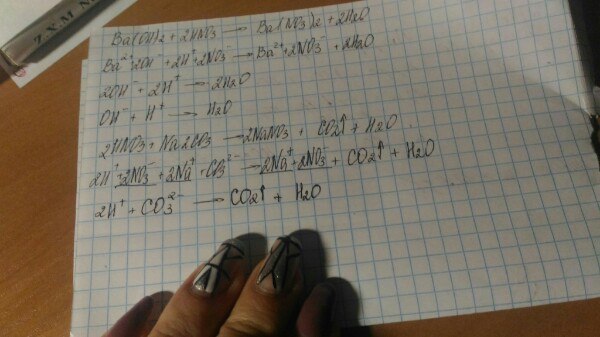 Z.X.M
Ba(OH)₂ + 2HNO₃ → Ba(NO₃)₂ + 2H₂O
Ba²⁺ 2OH⁻ + 2H⁺ + 2NO₃⁻ → Ba²⁺ + 2NO₃⁻ + 2H₂O
2OH⁻ + 2H⁺ → 2H₂O
OH⁻ + H⁺ → H₂O
2HNO₃ + Na₂CO₃ → 2NaNO₃ + CO₂↑ + H₂O
2H⁺ + 2NO₃⁻ + 2Na⁺ + CO₃²⁻ → 2Na⁺ + 2NO₃⁻ + CO₂↑ + H₂O
2H⁺ + CO₃²⁻ → CO₂↑ + H₂O